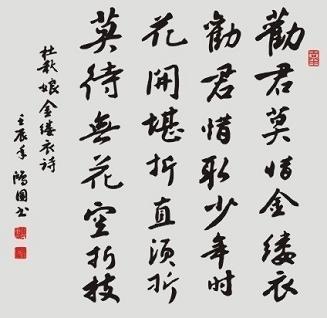 勸君莫惜金缕衣
勸君惜取少年时
花開堪折直须折
莫待無花空折枝
杜秋娘金缕衣詩
壬辰年鴻圖书